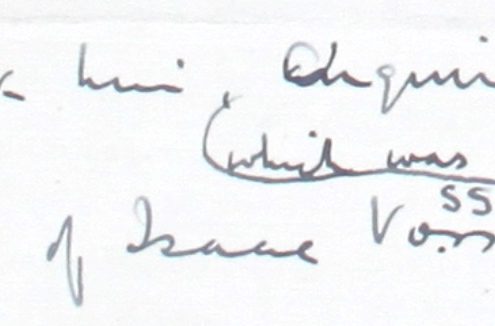 him. Enqui
(which was
ss
of Isaac Voss